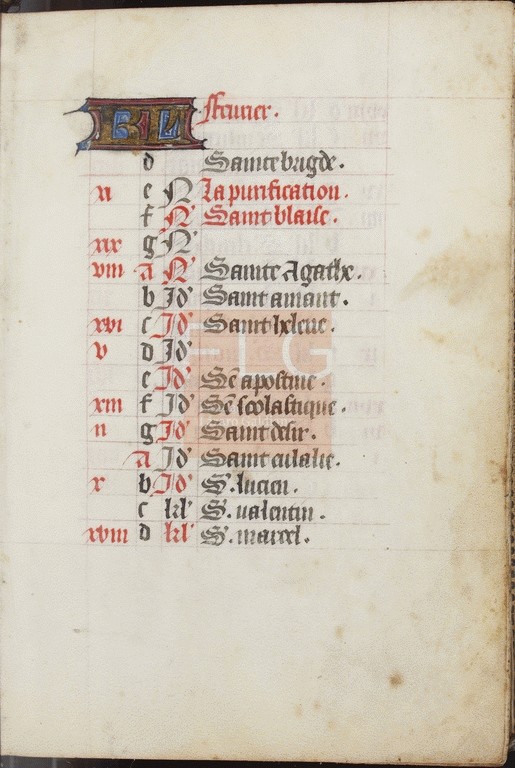 KL feurier.
d Sainte brigde.
xi e N La purification.
f N Saint blaise.
xix g N
viii A N Sainte Agathe.
b Id Saint amant.
xvi c Id Saint helene.
v d Id
e Id Sẽ apostine.
xiii f Id Sẽ scolastique.
ii g Id Saint desir.
A Id Saint eulalie.
x b Id S. lucien.
c kl S. valentin.
xviii d kl S. marcel.